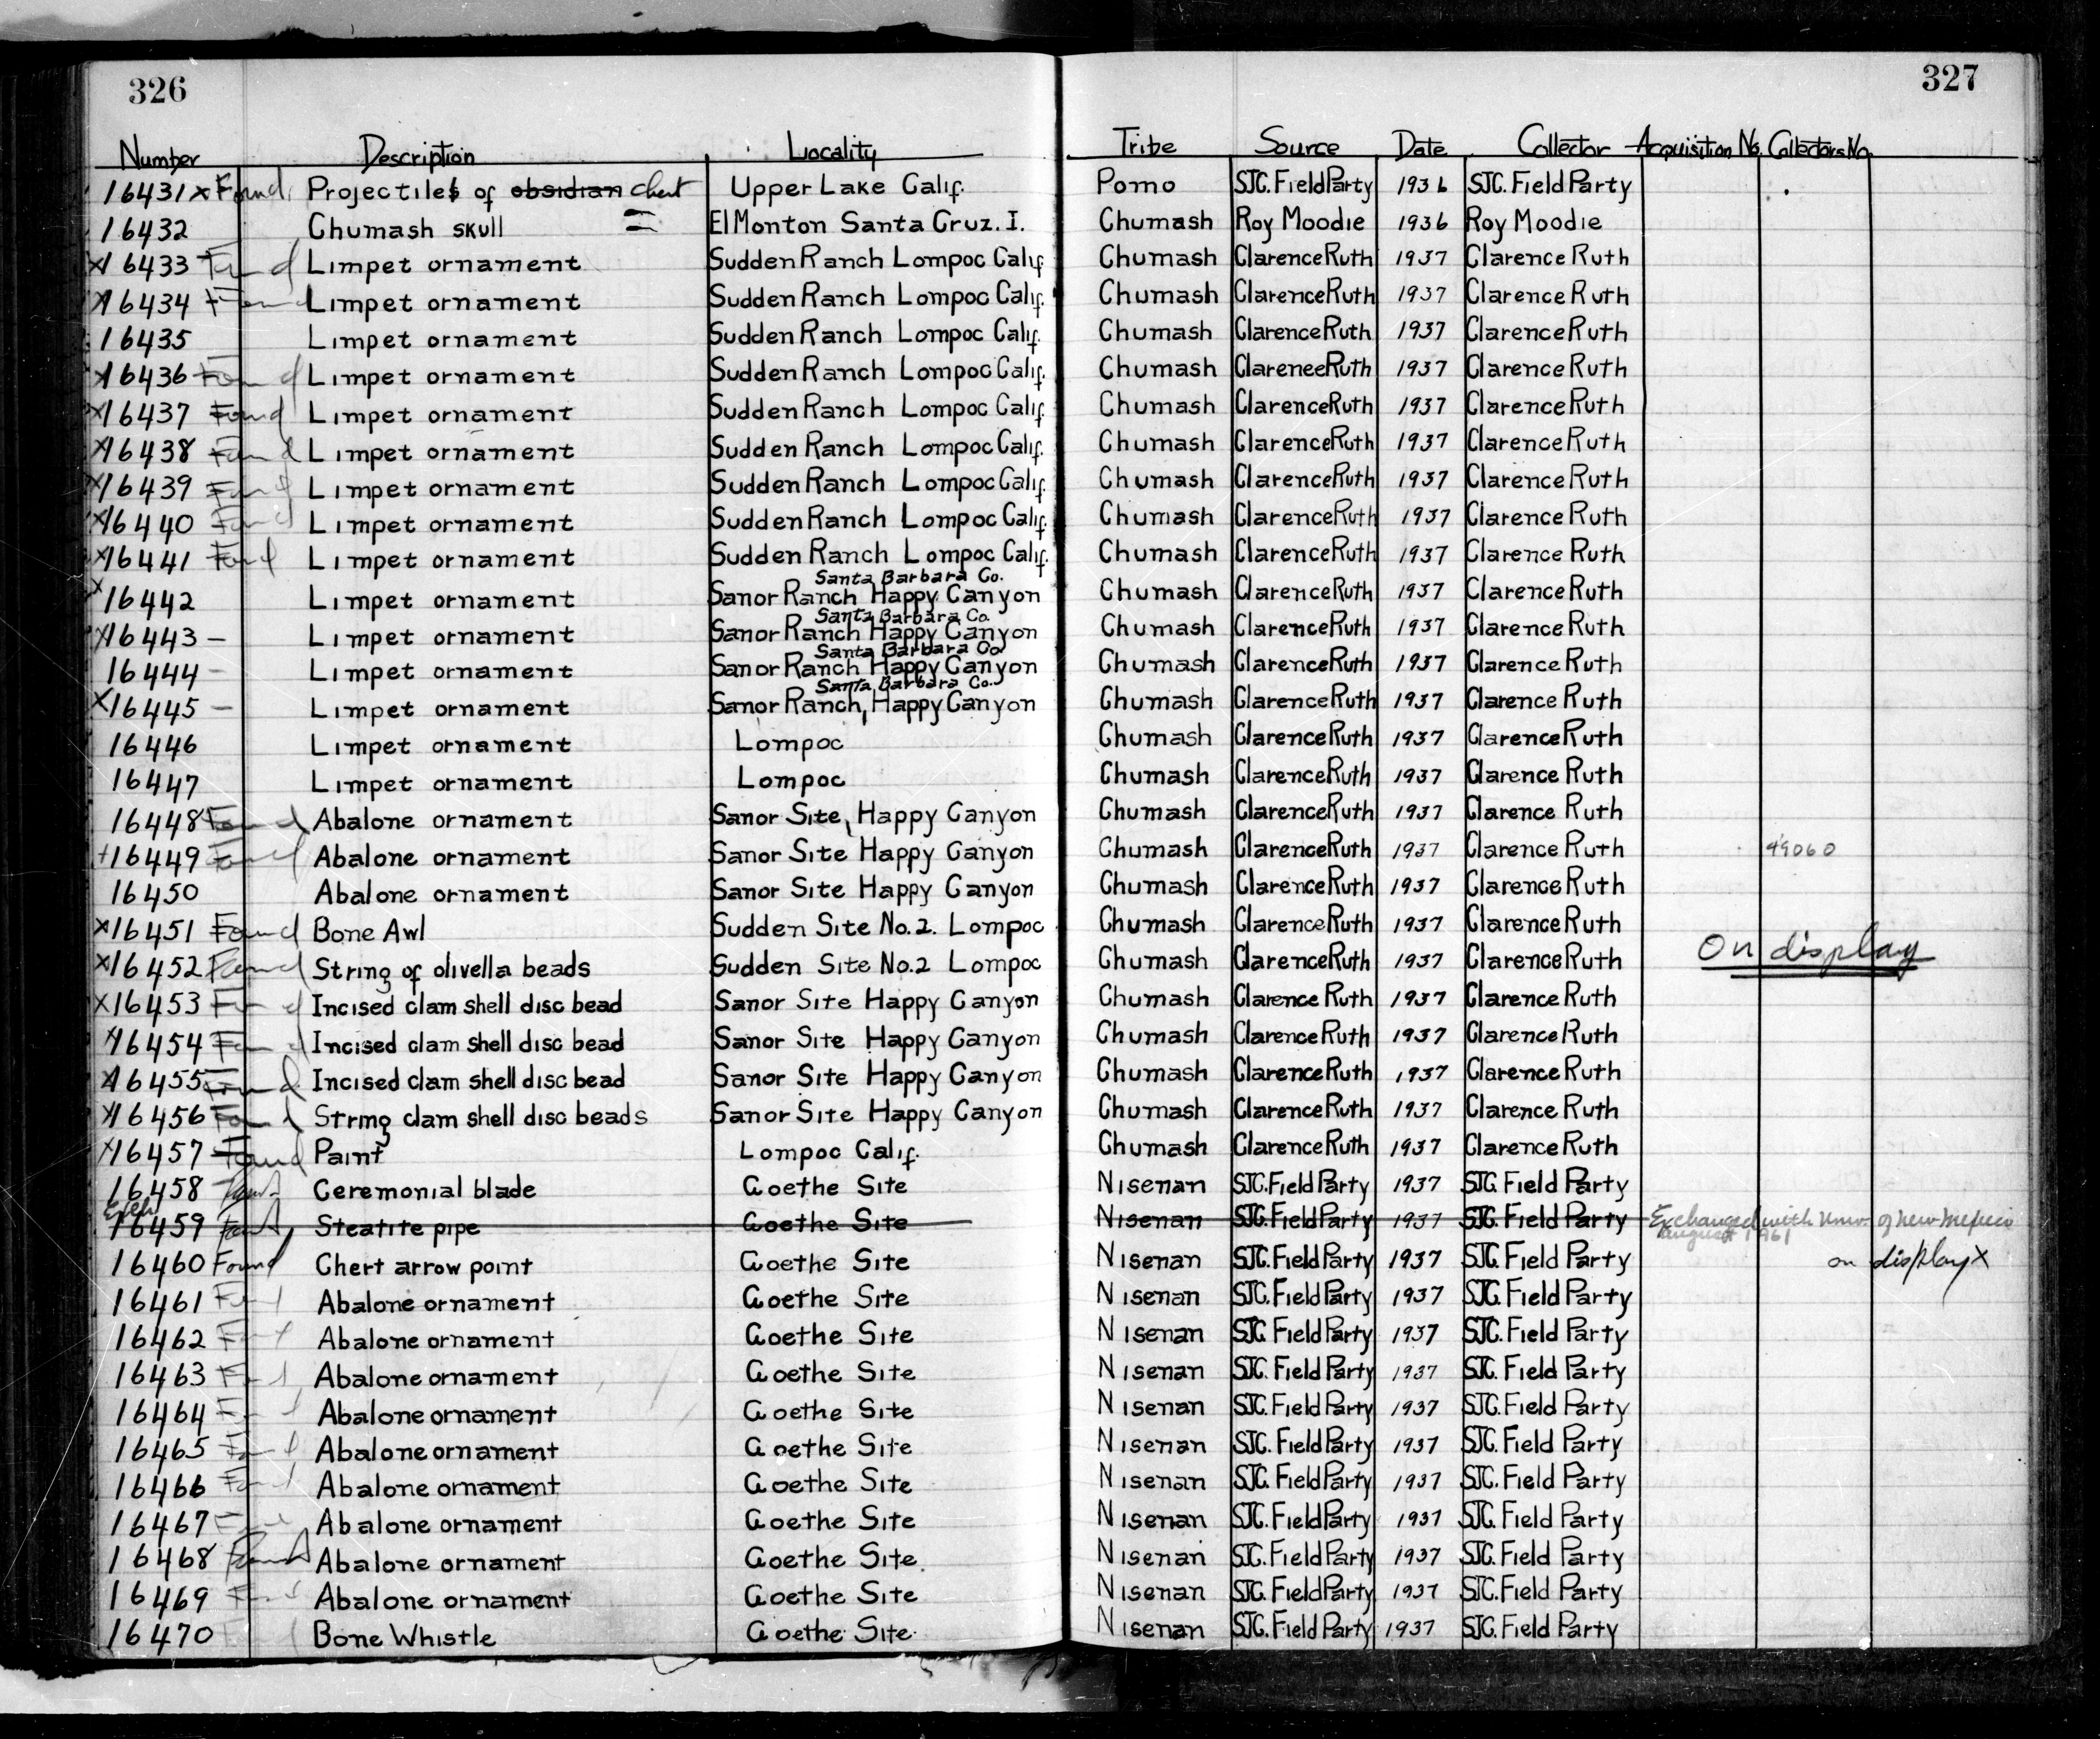 326 327
Number Description Locality Tribe Source Date Collector Acquisition No. Collectors No.
16431 x Found Projectiles of obsidian chert Upper Lake Calif. Pomo SJC. Field Party 1936 SJC. Field Party
16432 Chumash skull El Monton Santa Cruz. I. Chumash Roy Moodie 1936 Roy Moodie
x16433 Found Limpet ornament Sudden Ranch Lompoc Calif Chumash Clarence Ruth 1937 Clarence Ruth
x16434 Found Limpet ornament Sudden Ranch Lompoc Calif. Chumash Clarence Ruth 1937 Clarence Ruth
16435 Limpet ornament Sudden Ranch Lompoc Calif. Chumash Clarence Ruth 1937 Clarence Ruth
x16436 Found Limpet ornament Sudden Ranch Lompoc Calif. Chumash Clarence Ruth 1937 Clarence Ruth
x16437 Found Limpet ornament Sudden Ranch Lompoc Calif. Chumash Clarence Ruth 1937 Clarence Ruth
x16438 Found Limpet ornament Sudden Ranch Lompoc Calif. Chumash Clarence Ruth 1937 Clarence Ruth
x16439 Found Limpet ornament Sudden Ranch Lompoc Calif. Chumash Clarence Ruth 1937 Clarence Ruth
x16440 Found Limpet ornament Sudden Ranch Lompoc Calif. Chumash Clarence Ruth 1937 Clarence Ruth
x16441 Found Limpet ornament Sudden Ranch Lompoc Calif. Chumash Clarence Ruth 1937 Clarence Ruth
Santa Barbara Co.
x16442 Limpet ornament Sanor Ranch Happy Canyon Chumash Clarence Ruth 1937 Clarence Ruth
Santa Barbara Co.
x16443 – Limpet ornament Sanor Ranch Happy Canyon Chumash Clarence Ruth 1937 Clarence Ruth
Santa Barbara Co.
16444 – Limpet ornament Sanor Ranch Happy Canyon Chumash Clarence Ruth 1937 Clarence Ruth
Santa Barbara Co.
x16445 – Limpet ornament Sanor Ranch, Happy Canyon Chumash Clarence Ruth 1937 Clarence Ruth
16446 Limpet ornament Lompoc Chumash Clarence Ruth 1937 Clarence Ruth
16447 Limpet ornament Lompoc Chumash Clarence Ruth 1937 Clarence Ruth
16448 Found Abalone ornament Sanor Site, Happy Canyon Chumash Clarence Ruth 1937 Clarence Ruth
+16449 Found Abalone ornament Sanor Site Happy Canyon Chumash Clarence Ruth 1937 Clarence Ruth 49060
16450 Abalone ornament Sanor Site Happy Canyon Chumash Clarence Ruth 1937 Clarence Ruth
x16451 Found Bone Awl Sudden Site No. 2. Lompoc Chumash Clarence Ruth 1937 Clarence Ruth
x16452 Found String of olivella beads Sudden Site No. 2 Lompoc Chumash Clarence Ruth 1937 Clarence Ruth On display
x16453 Found Incised clam shell disc bead Sanor Site Happy Canyon Chumash Clarence Ruth 1937 Clarence Ruth
x16454 Found Incised clam shell disc bead Sanor Site Happy Canyon Chumash Clarence Ruth 1937 Clarence Ruth
x16455 Found Incised clam shell disc bead Sanor Site Happy Canyon Chumash Clarence Ruth 1937 Clarence Ruth
x16456 Found String clam shell disc beads Sanor Site Happy Canyon Chumash Clarence Ruth 1937 Clarence Ruth
x16457 Found Paint Lompoc Calif. Chumash Clarence Ruth 1937 Clarence Ruth
16458 Found Ceremonial blade Goethe Site Nisenan SJC. Field Party 1937 SJC Field Party
Exch
16459 Found Steatite pipe Goethe Site Nisenan SJC. Field Party 1937 SJC. Field Party Exchanged with Univ. of New Mexico
August 1961
16460 Found Chert arrow point Goethe Site Nisenan SJC. Field Party 1937 SJC. Field Party on display x
16461 Found Abalone ornament Goethe Site Nisenan SJC. Field Party 1937 SJC. Field Party
16462 Found Abalone ornament Goethe Site Nisenan SJC. Field Party 1937 SJC. Field Party
16463 Found Abalone ornament Goethe Site Nisenan SJC. Field Party 1937 SJC. Field Party
16464 Found Abalone ornament Goethe Site Nisenan SJC. Field Party 1937 SJC. Field Party
16465 Found Abalone ornament Goethe Site Nisenan SJC. Field Party 1937 SJC. Field Party
16466 Found Abalone ornament Goethe Site Nisenan SJC. Field Party 1937 SJC. Field Party
16467 Found Abalone ornament Goethe Site Nisenan SJC. Field Party 1937 SJC. Field Party
16468 Found Abalone ornament Goethe Site Nisenan SJC. Field Party 1937 SJC. Field Party
16469 Found Abalone ornament Goethe Site Nisenan SJC. Field Party 1937 SJC. Field Party
16470 Bone Whistle Goethe Site Nisenan SJC. Field Party 1937 SJC. Field Party